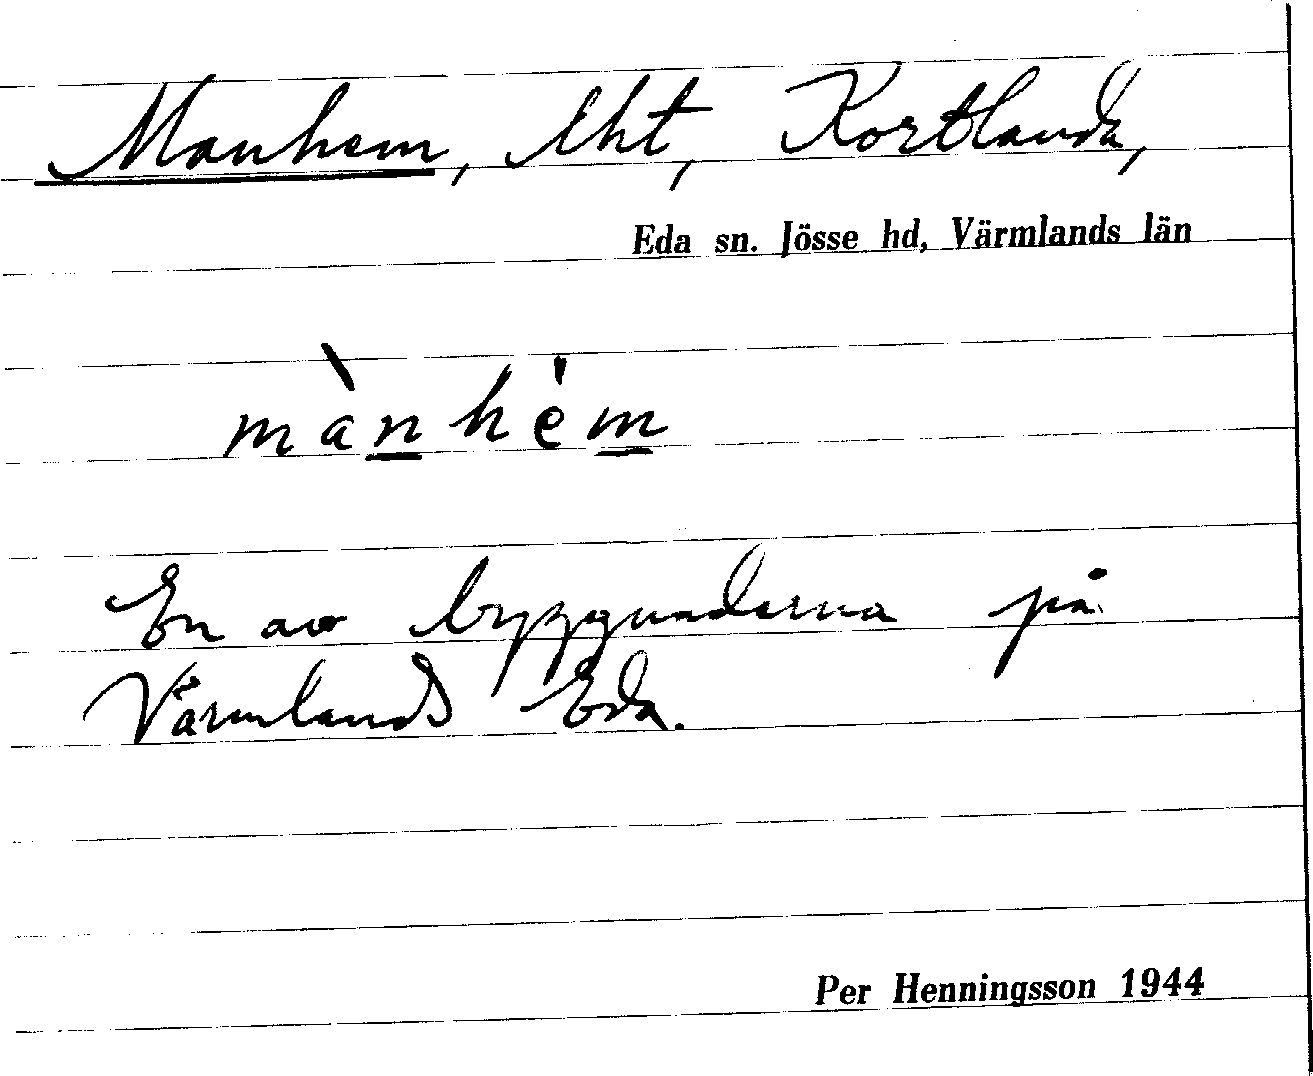 Manhem, lht, Kortlanda,
Eda sn. Jösse hd, Värmlands län
mànhèm
En av byggnaderna på
Värmlands Eda.
Per Henningsson 1944